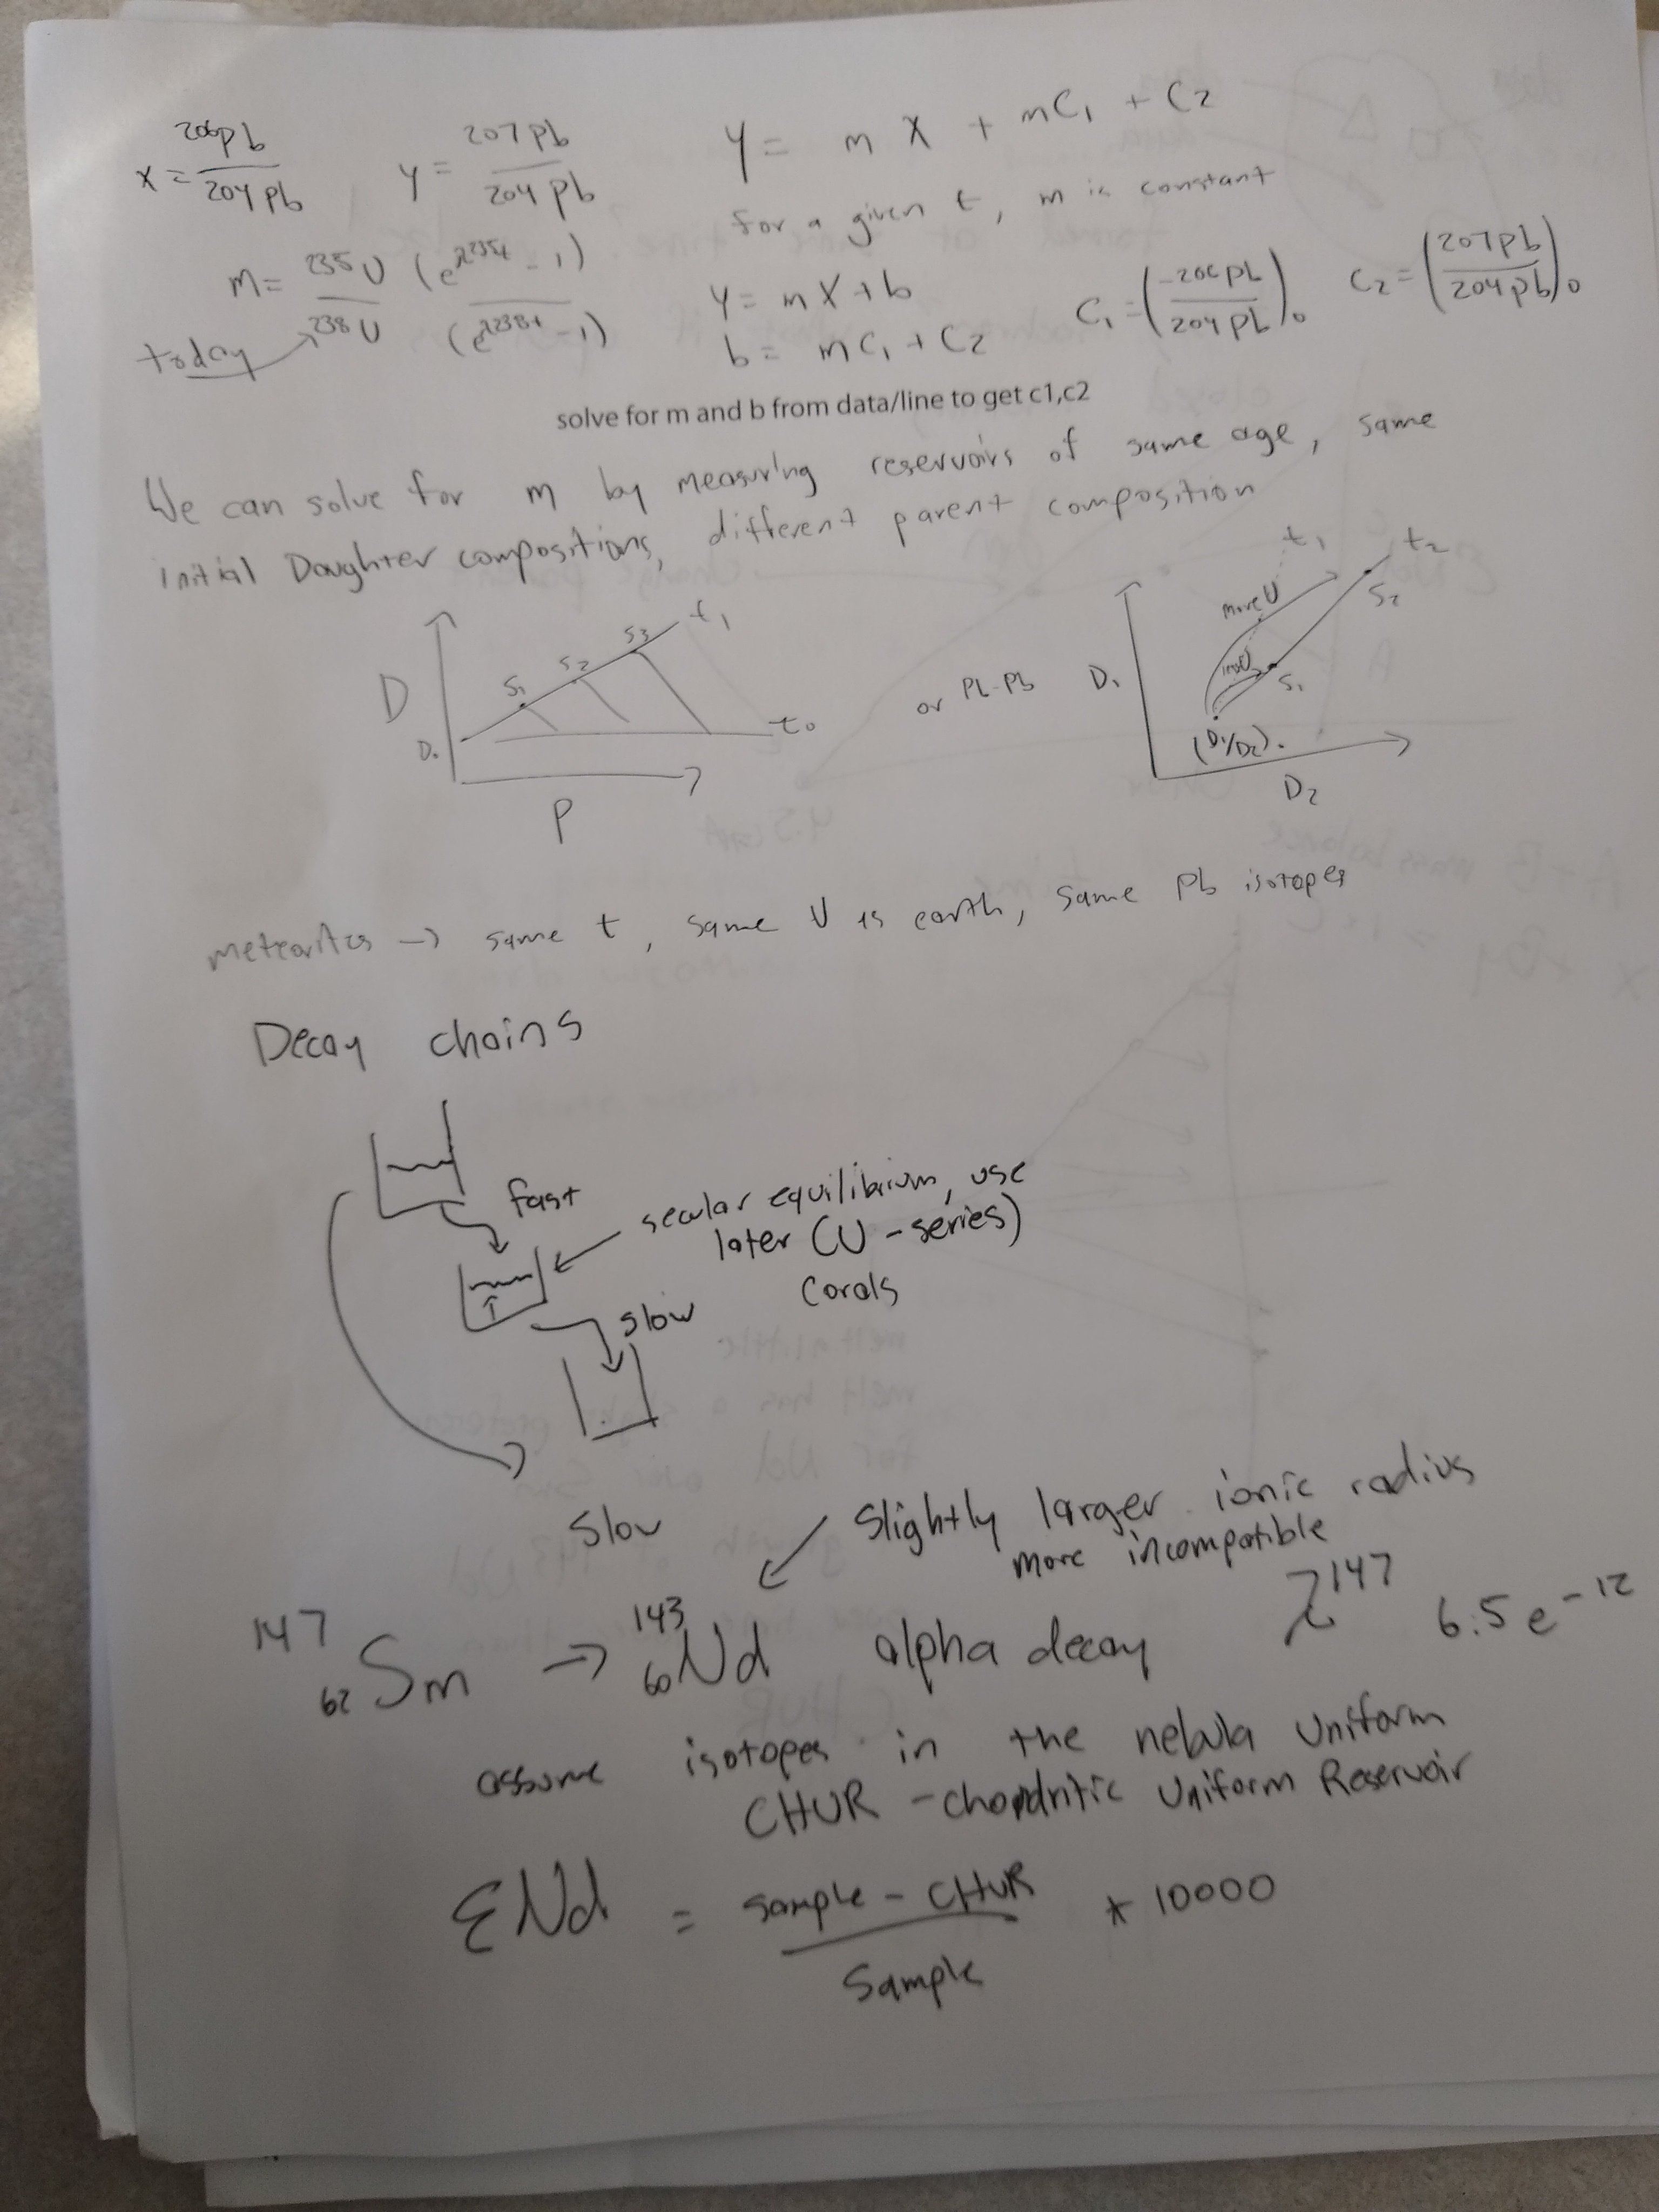 x = 206Pb / 204Pb   y = 207Pb / 204Pb   y = m x + mC₁ + C₂
for a given t, m is constant
m = 235U (e^λ235t - 1) / 238U (e^λ238t - 1)
today
y = mx + b   C₁ = (-206Pb / 204Pb)₀   C₂ = (207Pb / 204Pb)₀
b = mC₁ + C₂
solve for m and b from data/line to get c1,c2
We can solve for m by measuring reservoirs of same age, same
initial Daughter compositions, different parent composition
D
D₀
S₁
S₂
S₃
t₁
t₀
P
or Pb-Pb
D₁
more U
t₁
t₂
S₂
S₁
(D₁/D₂)₀
D₂
meteorites → same t, same U as earth, same Pb isotopes
Decay chains
fast
secular equilibrium, use
later (U-series)
Corals
slow
slow
slightly larger ionic radius
more incompatible
¹⁴⁷₆₂Sm → ¹⁴³₆₀Nd alpha decay λ¹⁴⁷ 6.5e⁻¹²
assume isotopes in the nebula uniform
CHUR - chondritic Uniform Reservoir
εNd = sample - CHUR / Sample * 10000